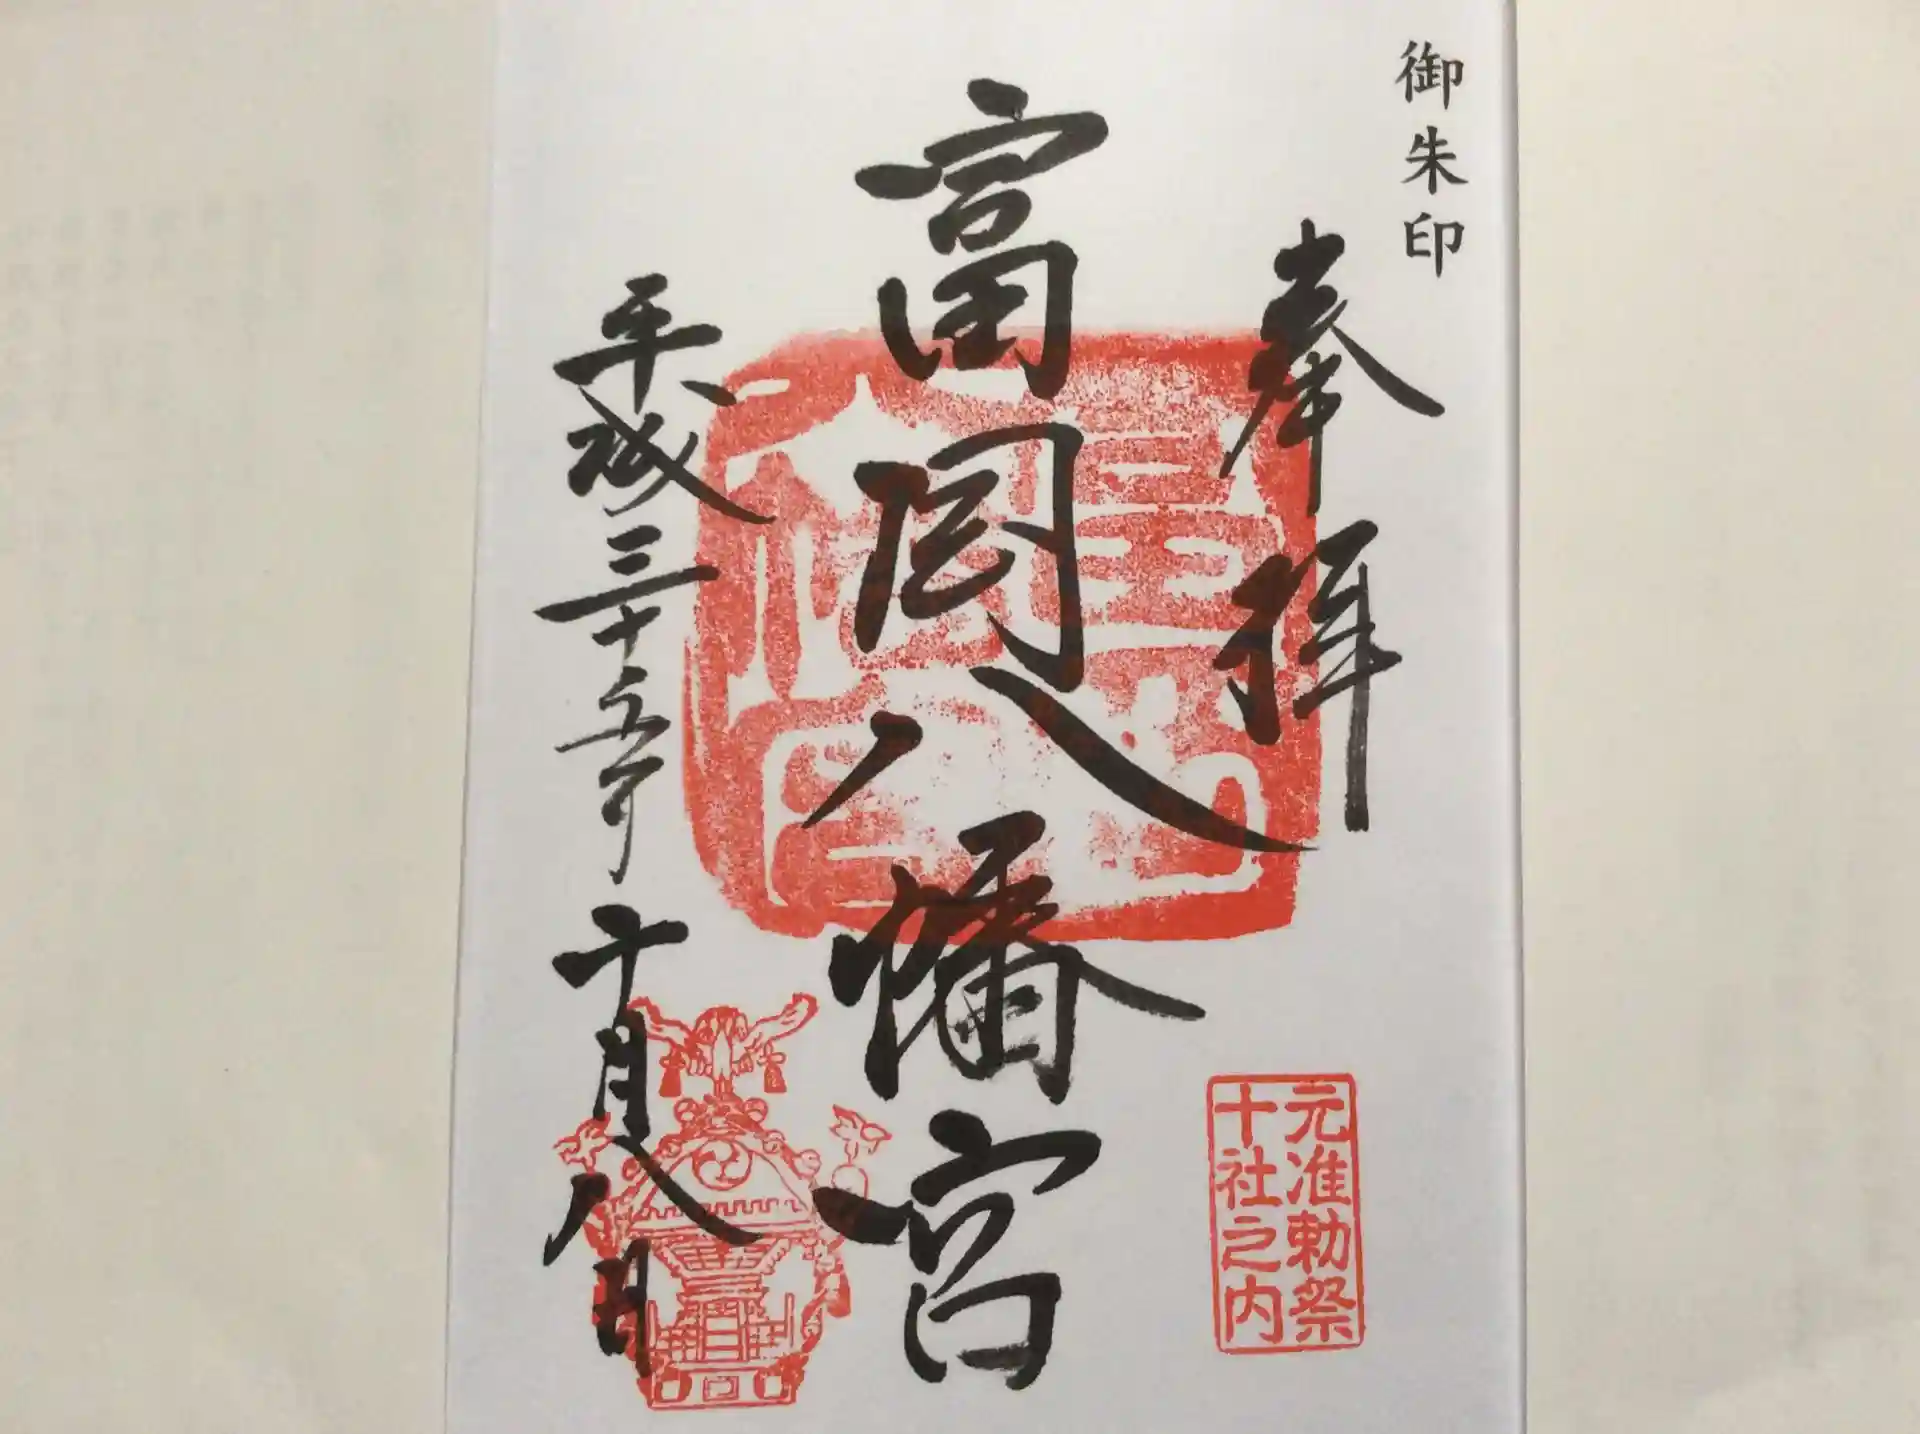 御朱印
奉拝
元准勅祭
十社之内
富岡八幡宮
平成二十五年十月八日